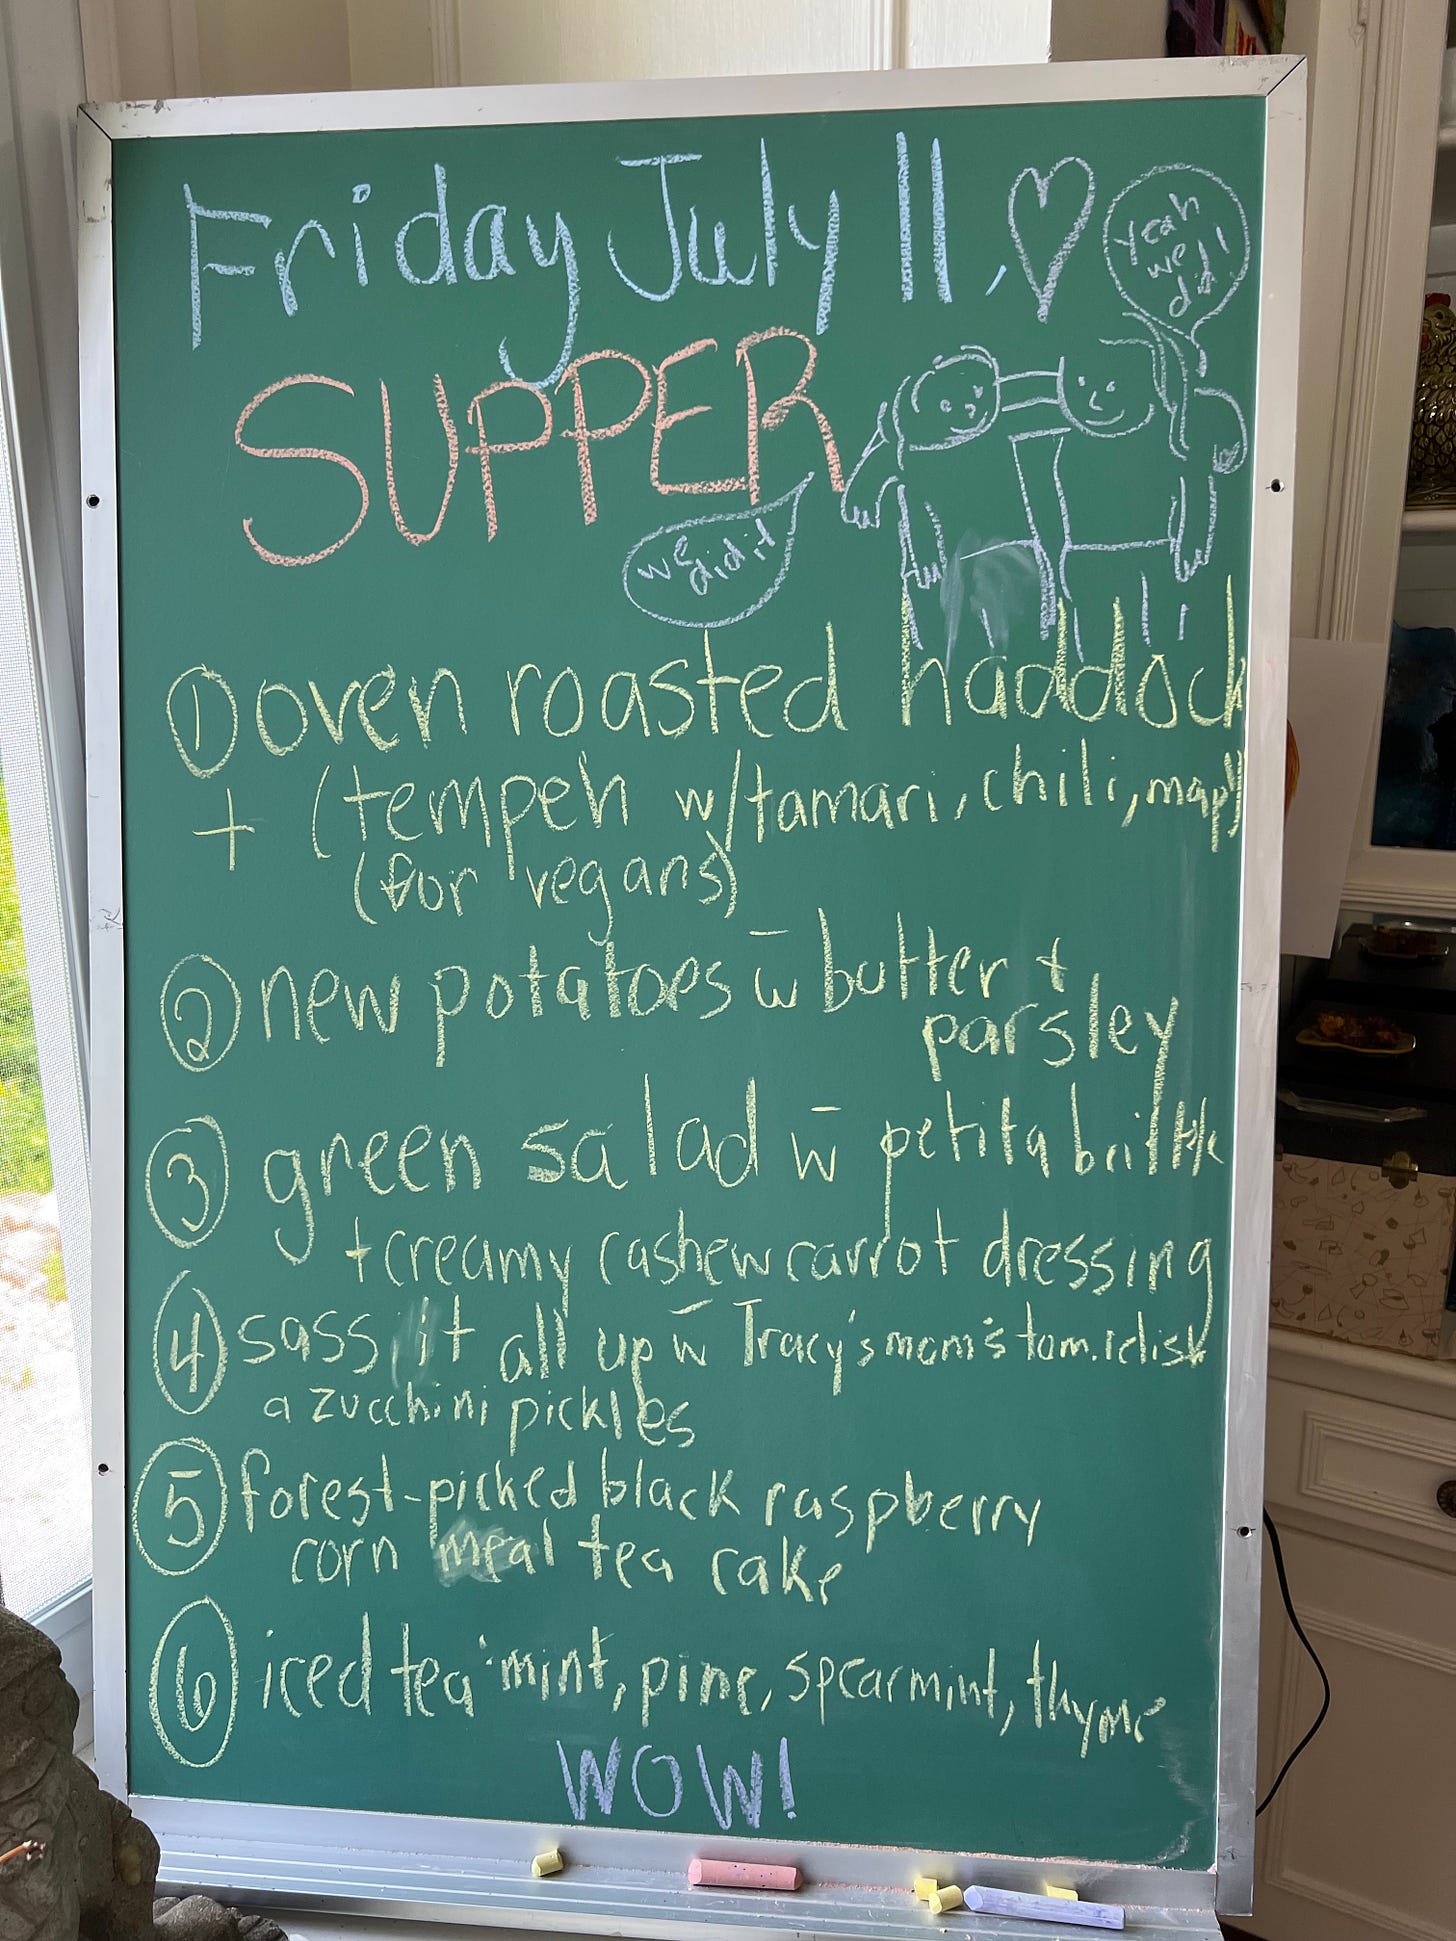 Friday July 11,
yeah
we
did!!
SUPPER
we
did it
① oven roasted haddock
+ (tempeh w/tamari, chili, maple)
(for vegans)
② new potatoes w̄ butter +
parsley
③ green salad w̄ petita brittle
+ creamy cashew carrot dressing
④ sass it all up w̄ Tracy's mom's tom. relish
a zucchini pickles
⑤ forest-picked black raspberry
corn meal tea cake
⑥ iced tea: mint, pine, spearmint, thyme
WOW!